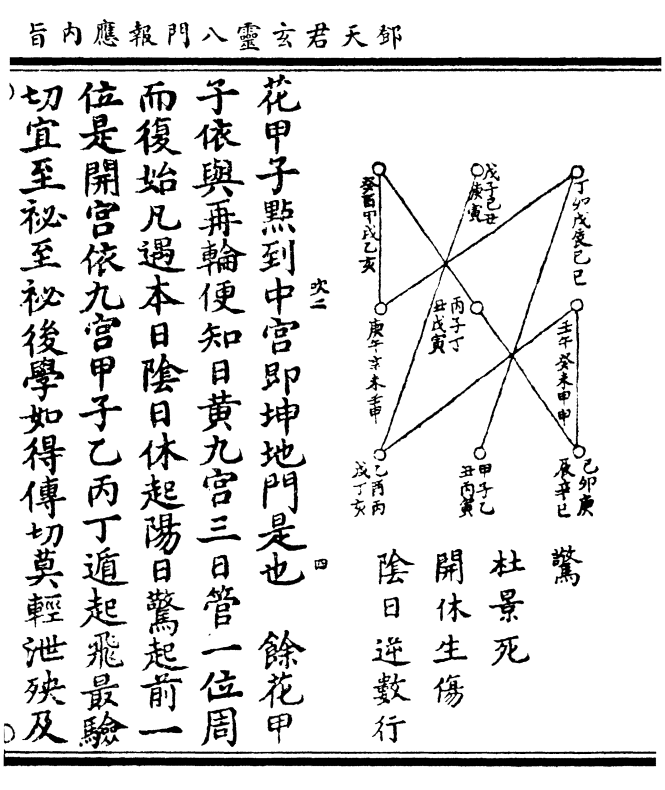 鄧天君玄靈八門報應內旨
丁卯戊辰己巳
戊子己丑
庚寅
癸酉甲戌乙亥
壬午癸未甲申
丙子丁
丑戊寅
庚午辛未壬申
己卯庚
辰辛巳
甲子乙
丑丙寅
乙酉丙
戌丁亥
驚
杜景死
開休生傷
陰日逆數行
吹二
四
花甲子點到中宮即坤地門是也 餘花甲
子依與再輪便知日黃九宮三日管一位周
而復始凡遇本日陰日休起陽日驚起前一
位是開宮依九宮甲子乙丙丁遁起飛最驗
切宜至祕至祕後學如得傳切莫輕泄殃及